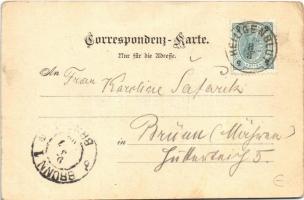 Correspondenz-Karte.
Nur für die Adresse.
HEILIGENBLUT
An Frau Karoline Šafařik
in Brünn (Mähren)
5.
BRÜNN 1